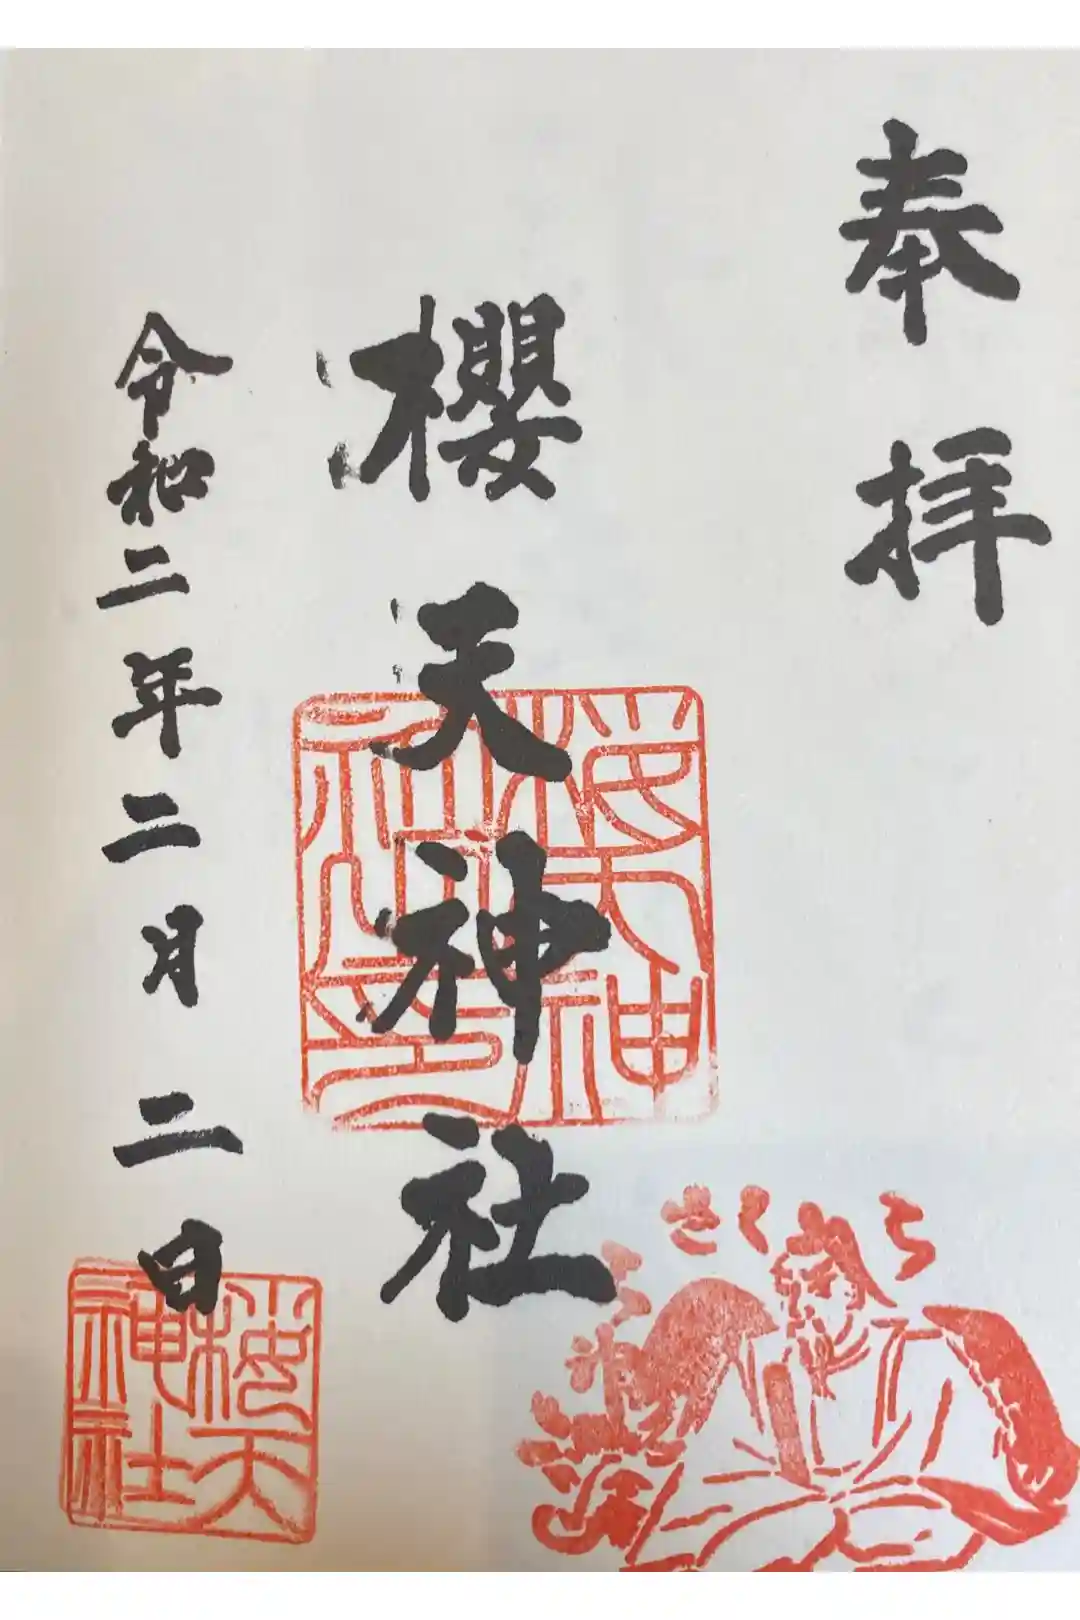 奉拝
櫻天神社
令和二年二月二日
桜天神社印
桜天神社